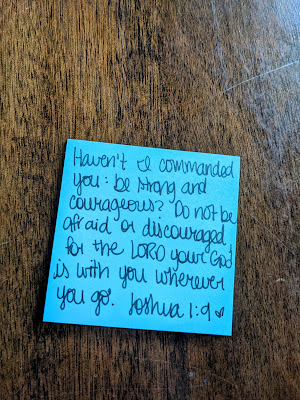 Haven't I commanded
you: be strong and
courageous? Do not be
afraid or discouraged,
for the LORD your God
is with you wherever
you go. Joshua 1:9